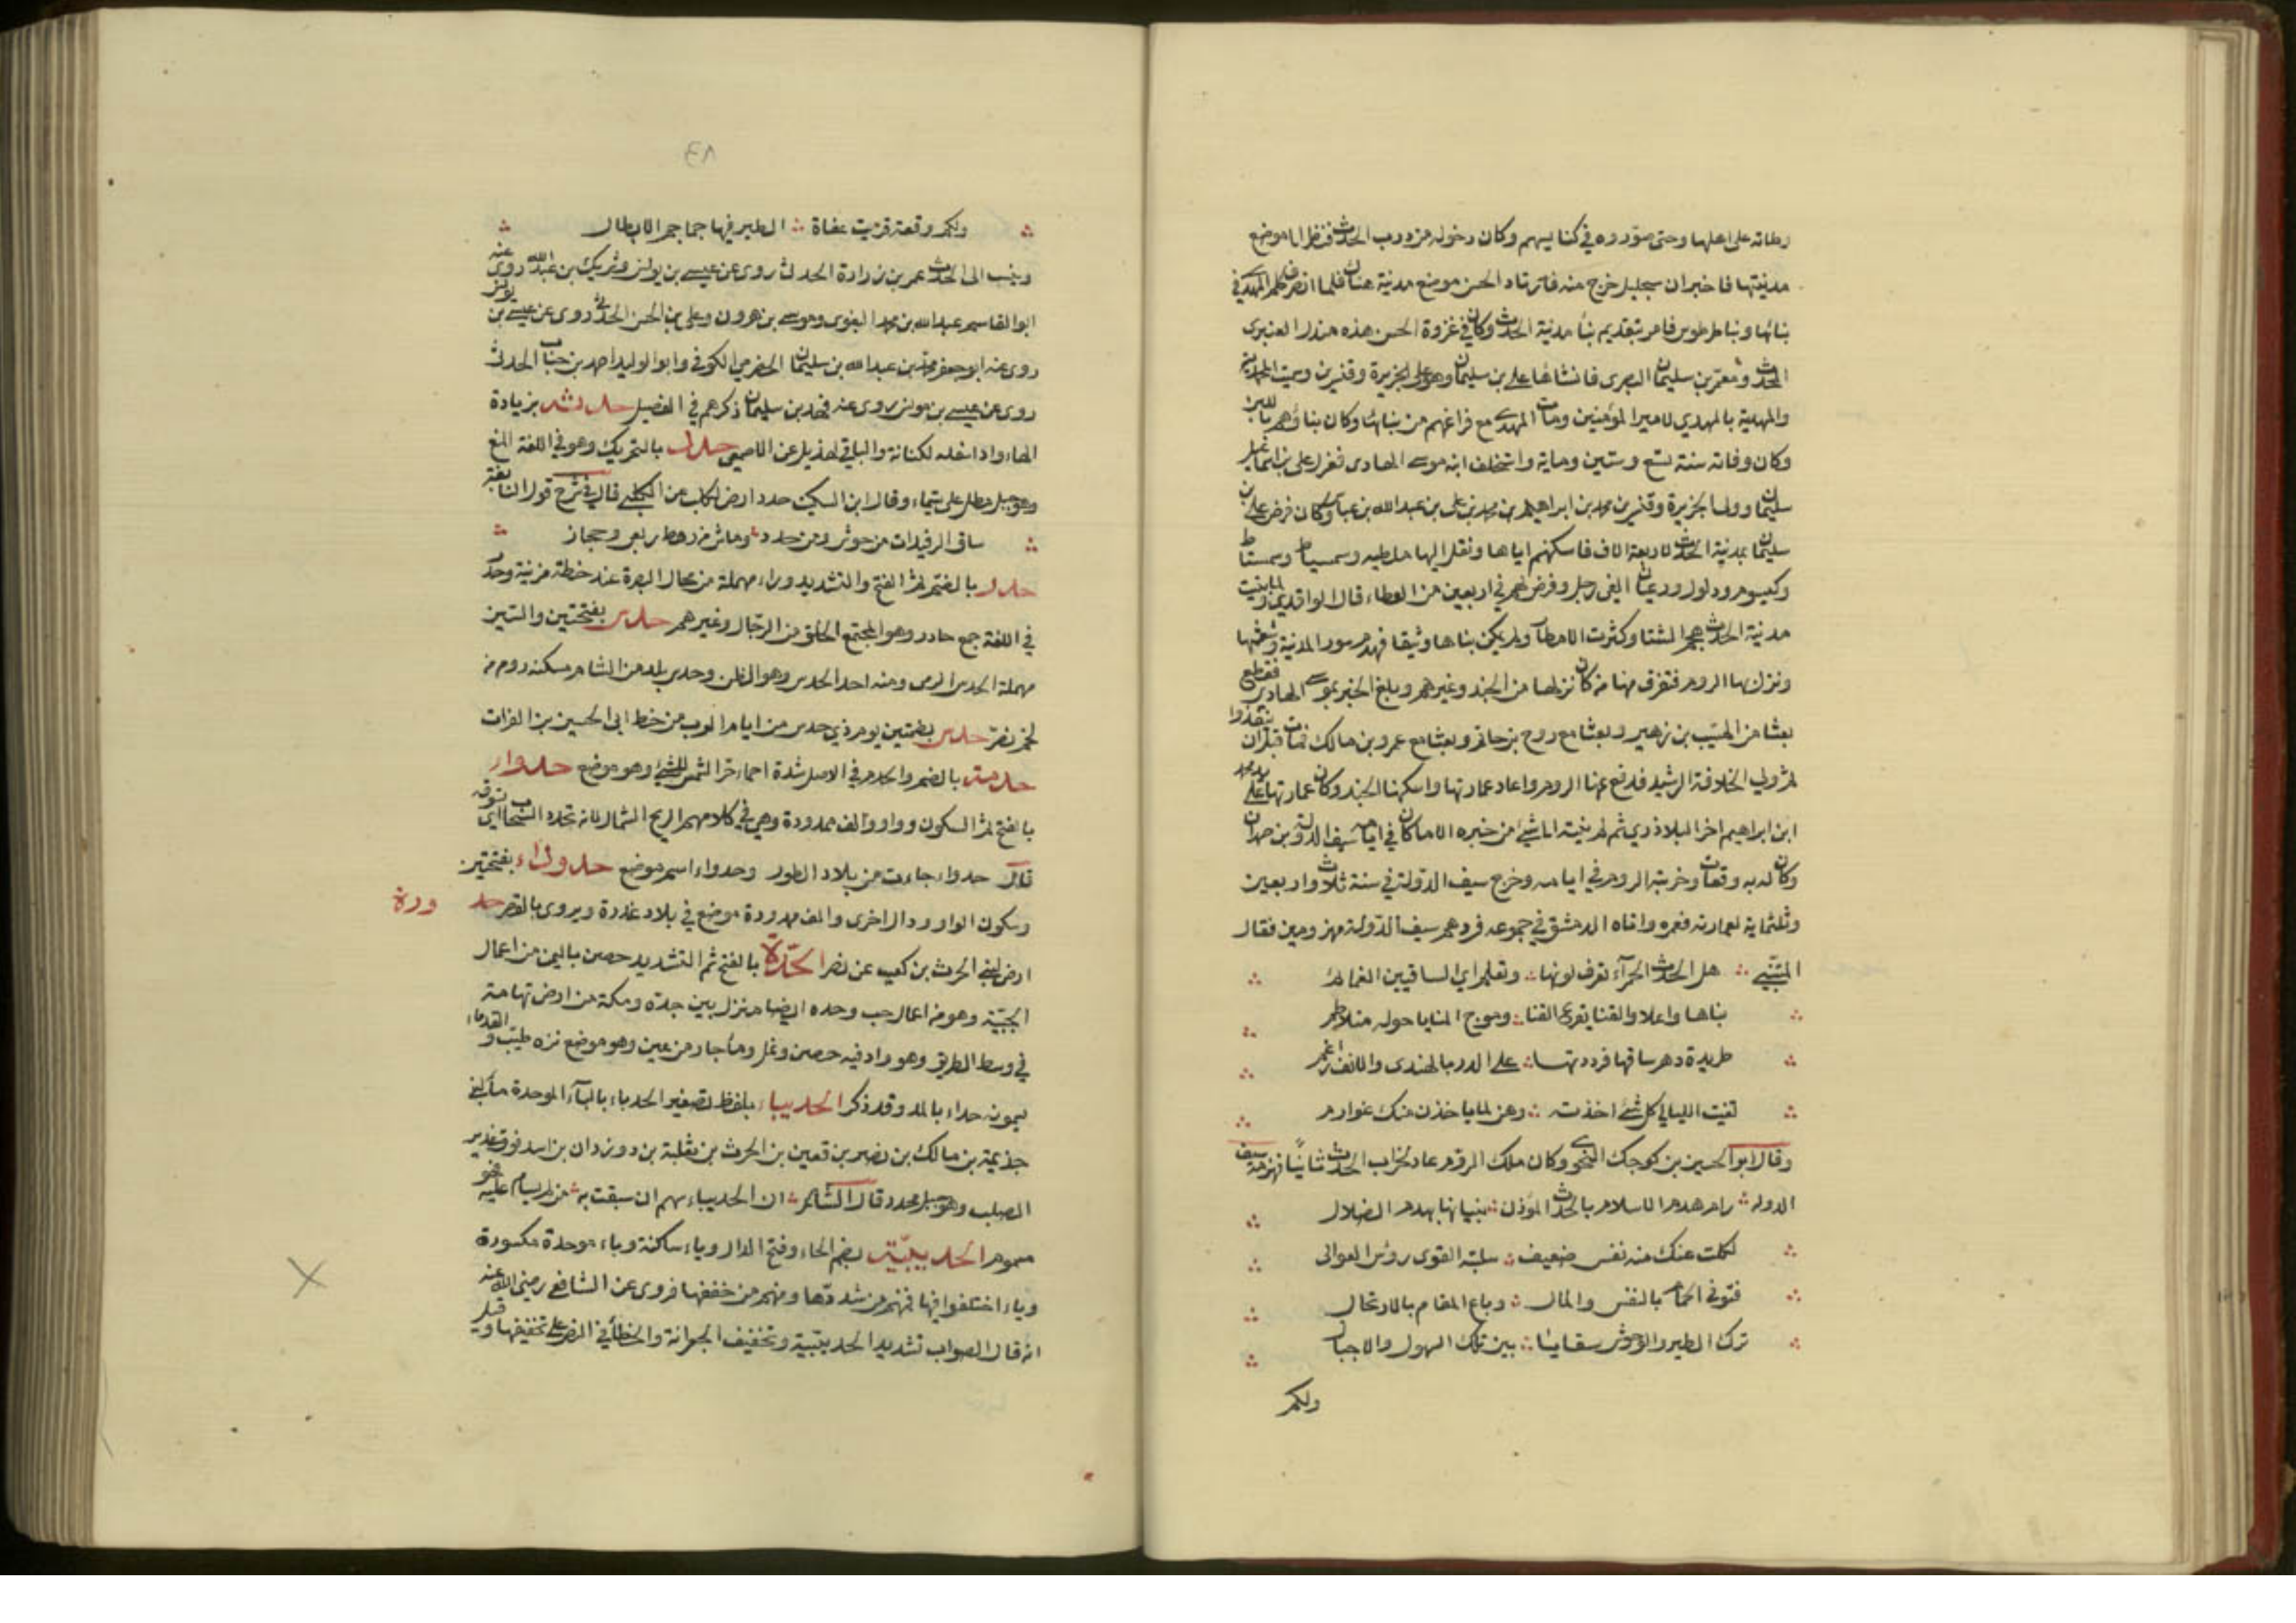 وطاته على اهلها وحتى صوروه في كنايسهم وكان دخوله من درب الحدث فنظر الى موضع
مدينتها فاخبر ان ميخائيل خرج منه فارتاد الحسن موضع مدينة هناك فلما انصرف كلم المهدي في
بنائها وبنا طرطوس فامر بتقديم بنأ مدينة الحدث وكان في غزوة الحسن هذه مندل العنبرى
المحدث ومعتمر بن سليمان البصرى فانشاها على بن سليمان وهو على الجزيرة وقنسرين وسميت المحمدية
والمهدية بالمهدي امير المؤمنين ومات المهدي مع فراغهم من بنائها وكان بناؤهم باللبن
وكان وفاته سنة تسع وستين وماية واستخلف ابنه موسى الهادى فعزل على بن
سليمان وولى الجزيرة وقنسرين محمد بن ابراهيم بن محمد بن على بن عبد الله بن عباس وكان فرض على بن
سليمان بمدينة الحدث لاربعة الاف فاسكنهم اياها ونقل اليها من ملطيه وسميساط وشمشاط
وكيسوم ودلوك ورعبان الفى رجل وفرض لهم في اربعين من العطاء قال الواقدي ولما بنيت
مدينة الحدث هجم الشتا وكثرت الامطار ولم يكن بناها وثيقا فهدم سور المدينة وشعثها
ونزل بها الروم فتفرق عنها من كان نزلها من الجند وغيرهم وبلغ الخبر موسى الهادى فقطع
بعثا مع المسيب بن زهير وبعثا مع روح بن حاتم وبعثا مع عمرو بن مالك فمات قبل ان ينفذوا
ثم ولي الخلافة الرشيد فدفع عنها الروم واعاد عمارتها واسكنها الجند وكان عمارتها على يد محمد
ابن ابراهيم اخر البلاذري ثم لم ينته الى شئ من خبره الا ما كان في ايام سيف الدولة بن حمدان
وكان له به وقعات وخربته الروم في ايامه وخرج سيف الدولة في سنة ثلاث واربعين
وثلثماية لعمارته فعمره واتاه الدمستق في جموعه فردهم سيف الدولة مهزومين فقال
المتنبي هل الحدث الحمرآء تعرف لونها وتعلم اي الساقيين الغمائم
بناها واعلا والقنا يقرع القنا وموج المنايا حوله متلاطم
طريدة دهر ساقها فرددتها على الدين بالهندى والانف راغم
تفيت الليالي كل شئ اخذته وهن لما ياخذن منك غوارم
وقال ابو الحسين بن كوجك النحوي وكان ملك الروم عاد لخراب الحدث ثانيا فهزمه سيف
الدولة رام هدم الاسلام بالحدث المؤذن بنيانها بهدم الضلال
نكلت عنك منه نفس ضعيف سلبته القوى رؤس العوالى
فتوقى الحمام بالنفس والمال وباع المقام بالارتحال
ترك الطير والوحوش سغابا بين تلك السهول والاجبال
ولكم
ولكم وقعة قريت عفاة الطير فيها جماجم الابطال
وينسب الى الحدث عمر بن زرارة الحدثى روى عن عيسى بن يونس وشريك بن عبد الله روى عنه
ابو القاسم عبد الله بن محمد البغوى وموسى بن هرون وعلى بن الحسن الحدثى روى عن عيسى بن يونس
روى عنه ابو جعفر محمد بن عبد الله بن سليمان الحضرمى الكوفى وابو الوليد احمد بن جناب الحدثى
روى عن عيسى بن يونس روى عنه محمد بن سليمان ذكرهم في الفيصل حدثه بزيادة
الهاء واد اسفله لكنانة والباقي لهذيل عن الاصمعى حدد بالتحريك وهو في اللغة المنع
وهو جبل مطل على تيماء وقال ابن السكيت حدد ارض لكلب عن الكلبى قال في شرح قول النابغة
ساق الرفيدات من جوش ومن حدد وماش من رهط ربعى وحجار
حدر بالضم ثم الفتح والتشديد وراء مهملة من محال البصرة عند خطة مزينة وحدر
في اللغة جمع حادر وهو المجتمع الخلق من الرجال وغيرهم حدس بفتحتين والسين
مهملة الحدس الرمى ومنه اخذ الحدس وهو الظن وحدس بلد من الشام مسكنه قوم من
لخم نصر حدس بضمتين يوم ذي حدس من ايام العرب من خط ابى الحسين بن الفرات
حدمة بالضم والحدم في الاصل شدة احماء حر الشمس للشئ وهو موضع حدواء
بالفتح ثم السكون وواو والف ممدودة وهي في كلامهم الريح الشمال لانه تحدو السحاب اى تسوقه
قال حدواء جاءت من بلاد الطور وحدواء اسم موضع حدوداء بفتحتين
وسكون الواو ودال اخرى والف ممدودة موضع في بلاد عذرة ويروى بالقصر حد ورة
ارض لبنى الحرث بن كعب عن نصر الحدة بالفتح ثم التشديد حصن باليمن من اعمال
الحبية وهو من اعمال حب وحده ايضا منزل بين جدة ومكة من ارض تهامة
في وسط الطريق وهو واد فيه حصن ونخل ومأ جار من عين وهو موضع نزه طيب والقدماء
يسمونه حداء بالمد وقد ذكر الحديباء بلفظ تصغير الحدباء بالبآء الموحدة مأ لبنى
جذيمة بن مالك بن نصر بن قعين بن الحرث بن ثعلبة بن دودان بن اسد فوق غدير
الصلب وهو جبل محدد قال الشاعر ان الحديباء سهم ان سبقت به من لم يسام عليه فهو
مسموم الحديبيّة بضم الحاء وفتح الدال وياء ساكنة وباء موحدة مكسورة
وياء اختلفوا فيها فمنهم من شددها ومنهم من خففها فروى عن الشافعى رضى الله عنه
انه قال الصواب تشديد الحديبية وتخفيف الجعرانة والخطأ في نصر على تخفيفها وقيل